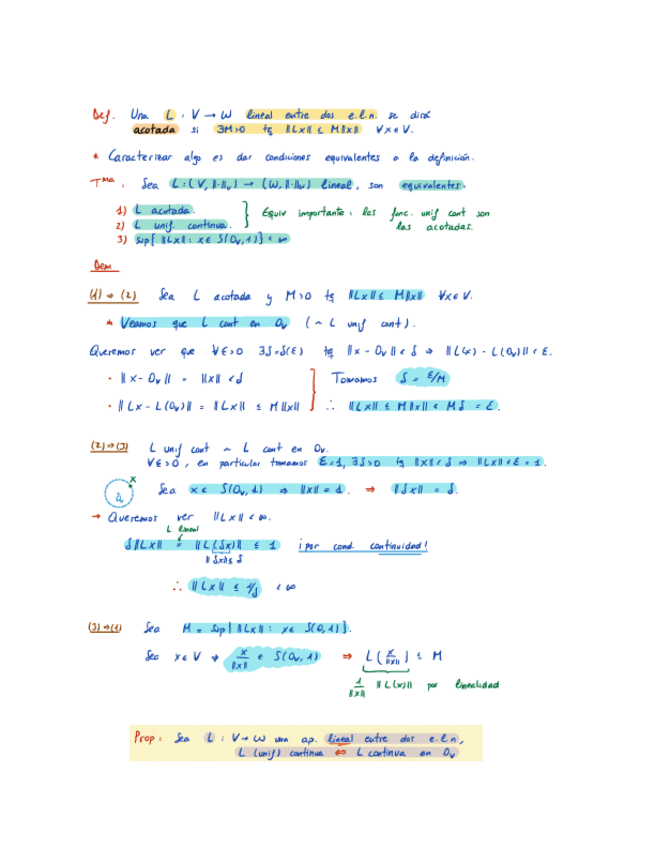 Def. Una L : V → W lineal entre dos e.l.n. se dirá
acotada si ∃M>0 tq ‖Lx‖ ≤ M‖x‖ ∀x∈V.
* Caracterizar algo es dar condiciones equivalentes a la definición.
Tma. Sea L:(V,‖·‖ᵥ) → (W,‖·‖w) lineal, son equivalentes.
1) L acotada.
2) L unif. continua.
3) sup{‖Lx‖: x∈ S(0ᵥ,1)} < ∞
} Equiv importante: las func. unif cont son
las acotadas.
Dem
(1) ⇒ (2) Sea L acotada y M>0 tq ‖Lx‖ ≤ M‖x‖ ∀x∈V.
* Veamos que L cont en 0ᵥ (∼ L unif cont).
Queremos ver que ∀ε>0 ∃δ=δ(ε) tq ‖x - 0ᵥ‖ < δ ⇒ ‖L(x) - L(0ᵥ)‖ < ε.
· ‖x - 0ᵥ‖ = ‖x‖ < δ
· ‖Lx - L(0ᵥ)‖ = ‖Lx‖ ≤ M‖x‖
] Tomamos δ = ε/M
∴ ‖Lx‖ ≤ M‖x‖ < Mδ = ε.
(2) ⇒ (3) L unif cont ∼ L cont en 0ᵥ.
∀ε>0, en particular tomamos ε=1, ∃δ>0 tq ‖x‖<δ ⇒ ‖Lx‖<ε=1.
x
Sea x∈ S(0ᵥ,1) ⇒ ‖x‖=1. ⇒ ‖δx‖ = δ.
→ Queremos ver ‖Lx‖ < ∞.
L lineal
δ‖Lx‖ = ‖L(δx)‖ ≤ 1 ¡por cond. continuidad!
‖δx‖≤ δ
∴ ‖Lx‖ ≤ 1/δ < ∞
(3) ⇒ (1) Sea M = sup{‖Lx‖: x∈ S(0,1)}.
Sea x∈V ⇒ x/‖x‖ ∈ S(0ᵥ,1) ⇒ L(x/‖x‖) ≤ M
1/‖x‖ ‖L(x)‖ por linealidad
Prop: Sea L : V→W una ap. lineal entre dos e.l.n,
L (unif) continua ⇔ L continua en 0ᵥ